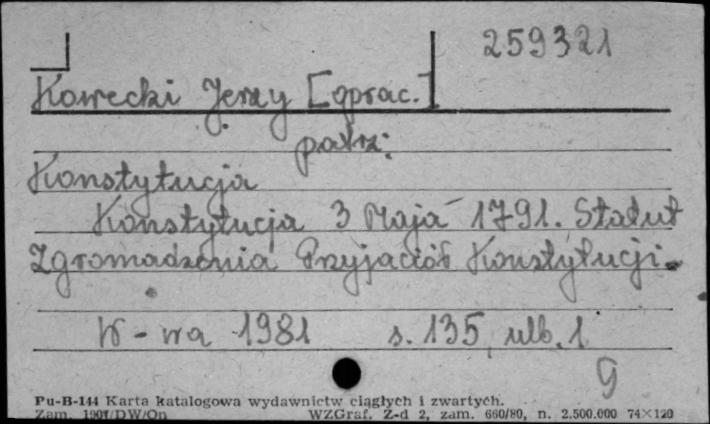 259321
Kowecki Jerzy [oprac.]
patrz:
Konstytucja
Konstytucja 3 Maja 1791. Statut
Zgromadzenia Przyjaciół Konstytucji.
W-wa 1981 s. 135, ulb. 1
g
Pu-B-144 Karta katalogowa wydawnictw ciągłych i zwartych.
Zam. 1901/DW/On WZGraf. Z-d 2, zam. 660/80, n. 2.500.000 74×120